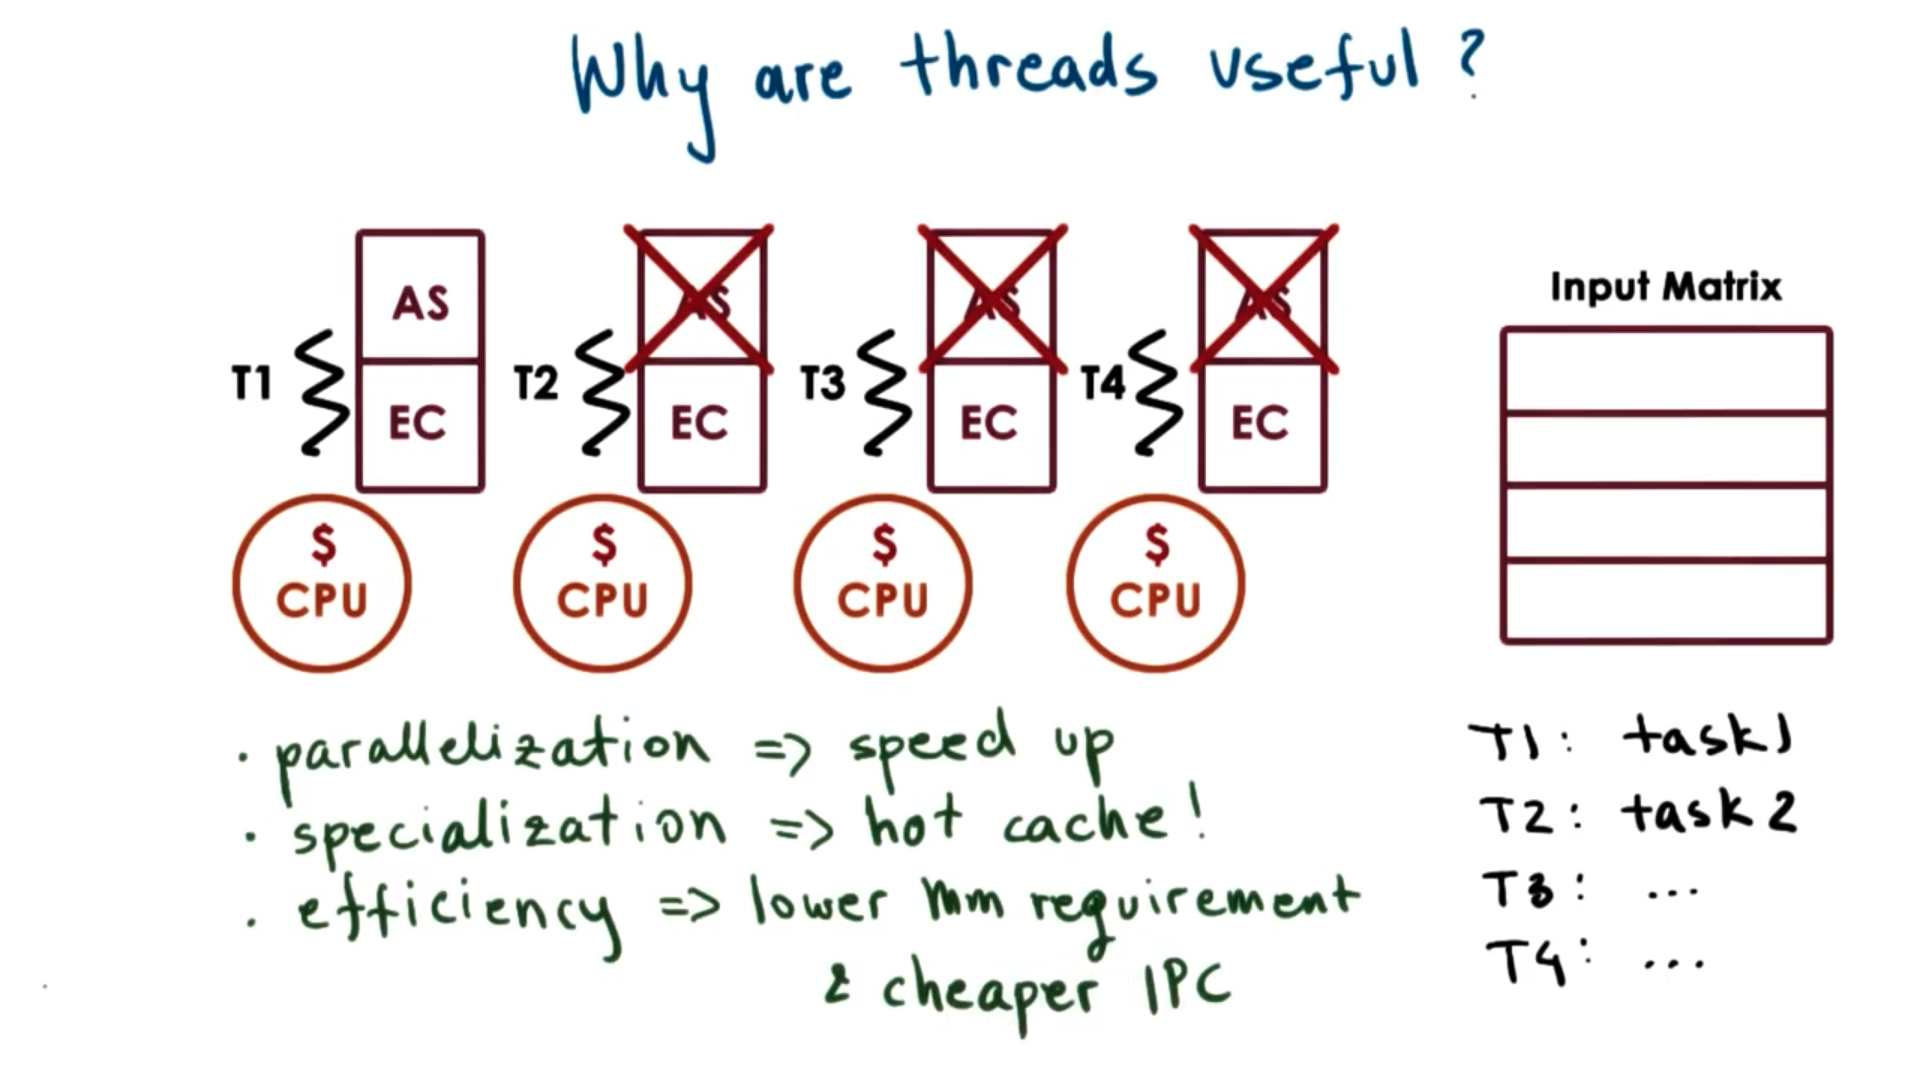 Why are threads useful?
AS AS AS AS
Input Matrix
T1 T2 T3 T4
EC EC EC EC
$ $ $ $
CPU CPU CPU CPU
· parallelization => speed up
· specialization => hot cache!
· efficiency => lower mm requirement
& cheaper IPC
T1: task1
T2: task2
T3: ...
T4: ...